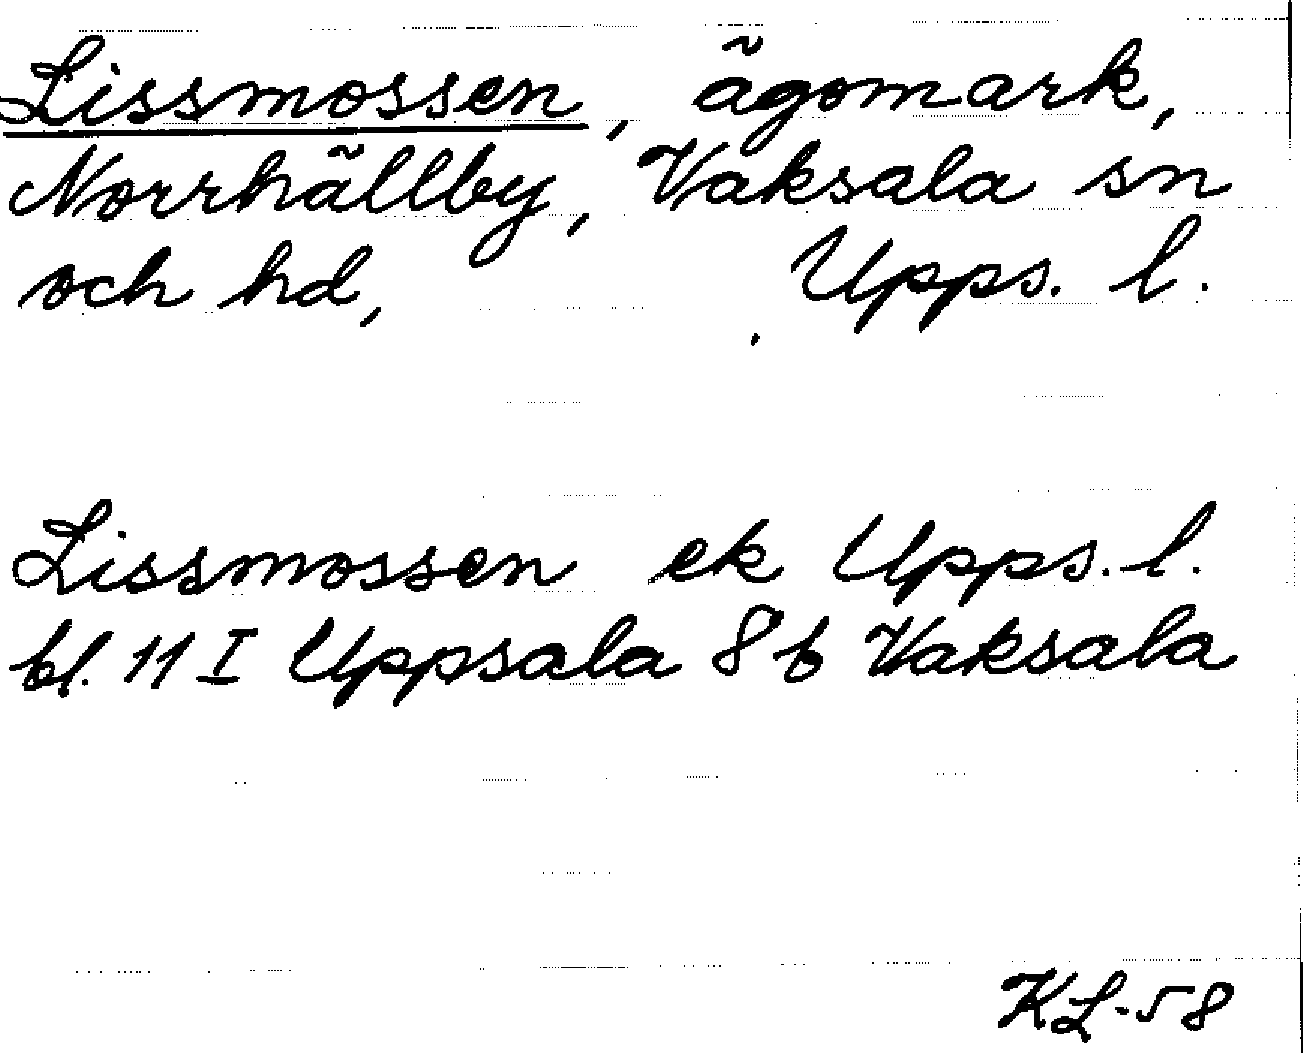 Lissmossen, ägomark,
Norrhällby, Vaksala sn
och hd, Upps. l.
Lissmossen ek Upps. l.
bl. 11 I Uppsala 8 b Vaksala
KL-58